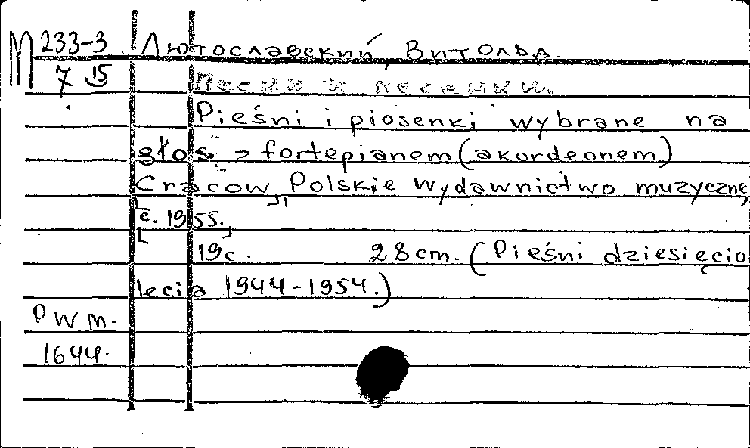 М 233-3 Лютославский, Витольд
7 15 Песни и песенки.
Pieśni i piosenki wybrane na
głos z fortepianem (akordeonem)
Cracow, Polskie Wydawnictwo muzyczne,
[c. 1955.]
19c. 28cm. (Pieśni dziesięcio
lecia 1944-1954.)
P W M.
1644.